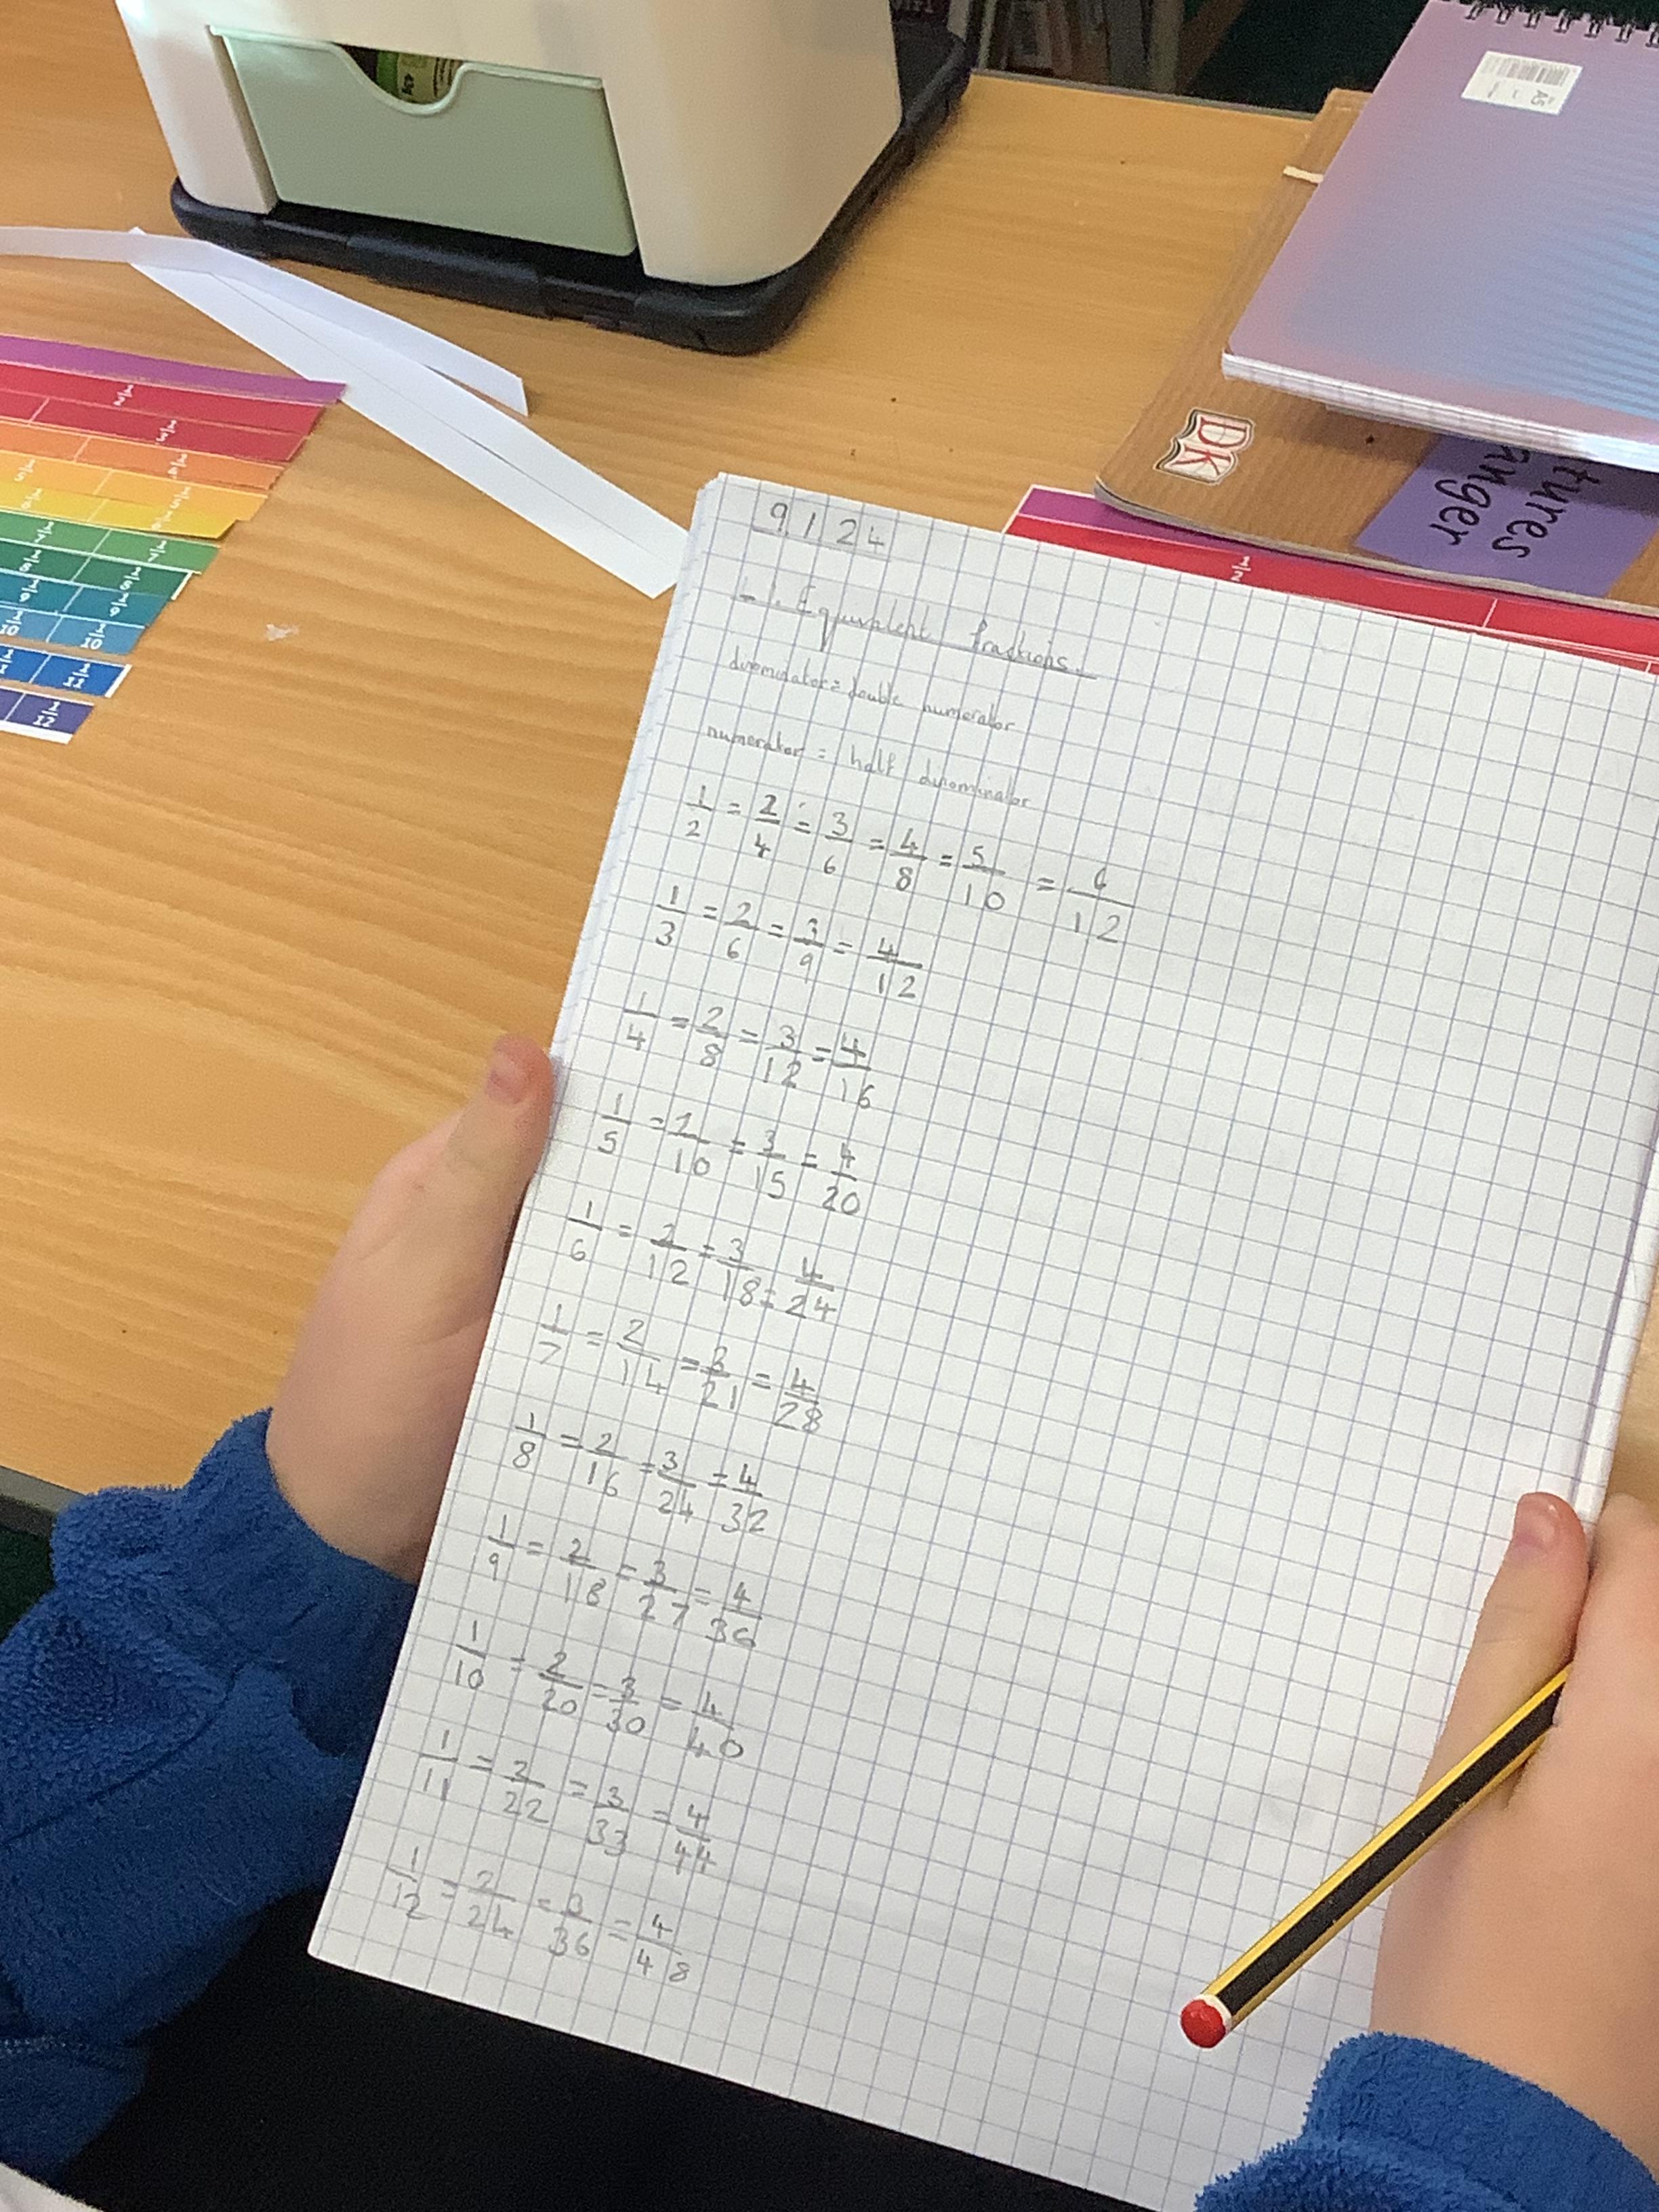 9.1.24
L.I. Equivalent fractions.
dinominator = double numerator
numerator = half dinominator
1/2 = 2/4 = 3/6 = 4/8 = 5/10 = 6/12
1/3 = 2/6 = 3/9 = 4/12
1/4 = 2/8 = 3/12 = 4/16
1/5 = 2/10 = 3/15 = 4/20
1/6 = 2/12 = 3/18 = 4/24
1/7 = 2/14 = 3/21 = 4/28
1/8 = 2/16 = 3/24 = 4/32
1/9 = 2/18 = 3/27 = 4/36
1/10 = 2/20 = 3/30 = 4/40
1/11 = 2/22 = 3/33 = 4/44
1/12 = 2/24 = 3/36 = 4/48
DK
tures
anger
1/2
1/2
1/3
1/12